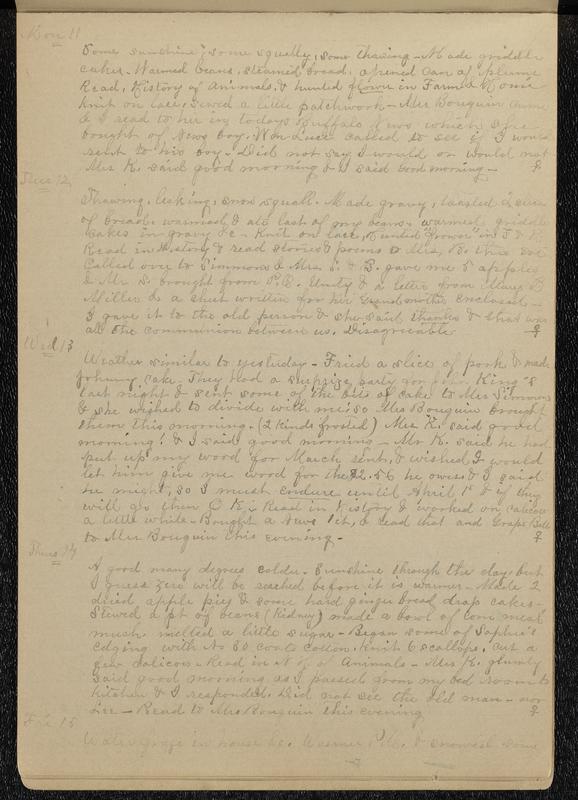 Mon 11
Some sunshine, some squally, some thawing - Made griddle
cakes. Warmed beans, steamed bread, opened can of plums
Read, History of Animals, & hunted flower in Farm & Home
Knit on lace, sewed a little patchwork - Mrs Bouquin came
& I read to her in todays Buffalo News which she
bought of News boy. Wm Luce called to see if I would
rent to his boy - Did not say I would or would not
Mrs K. said good morning & I said Good morning -
Tues 12
Thawing, leaking, snow squall. Made gravy, toasted 2 slices
of bread, warmed & ate last of my beans, warmed griddle
cakes in gravy &c - Knit on lace, hunted "flower" in F & H
Read in History & read stories & poems to Mrs B. this eve
Called over to Simmons & Mrs S. & B. gave me 5 apples
& Mr S. brought from P.O. Unity & a letter from Mary B
Miller & a sheet written for her Grandmother enclosed -
I gave it to the old person & she said thanks & that was
all the communion between us. Disagreeable
Wed 13
Weather similar to yesterday - Fried a slice of pork & made
Johnny cake. They had a surprise party for John King's
last night & sent some of the bits of cake to Mrs Simmons
& she wished to divide with me, so Mrs Bouquin brought
them this morning. (2 kinds frosted) Mrs K. said good
morning! & I said good morning - Mr K. said he had
put up my wood for March rent, & wished I would
let him give me wood for the $2.56 he owes & I said
he might, so I must endure until April 1st & if they
will go then O K. - Read in History & worked on calicoe
a little while - Bought a News 1ct, & read that and Grape Belt
to Mrs Bouquin this evening -
Thurs 14
A good many degrees colder. Sunshine through the day but
I guess zero will be reached before it is warmer - Made 2
dried apple pies & some hard ginger bread drop cakes -
Stewed a pt of beans (Kidney) made a bowl of corn meal
mush, melted a little sugar - Began some of Sophie's
edging with No 30 coats cotton, Knit 6 scallops, cut a
few calicoes - Read in N H of Animals - Mrs K. glumly
said good morning as I passed from my bed room to
kitchen & I responded. Did not see the old man - nor
Lee - Read to Mrs Bouquin this evening
Fri 15
Water froze in house &c. Warmer P.M. & snowed some